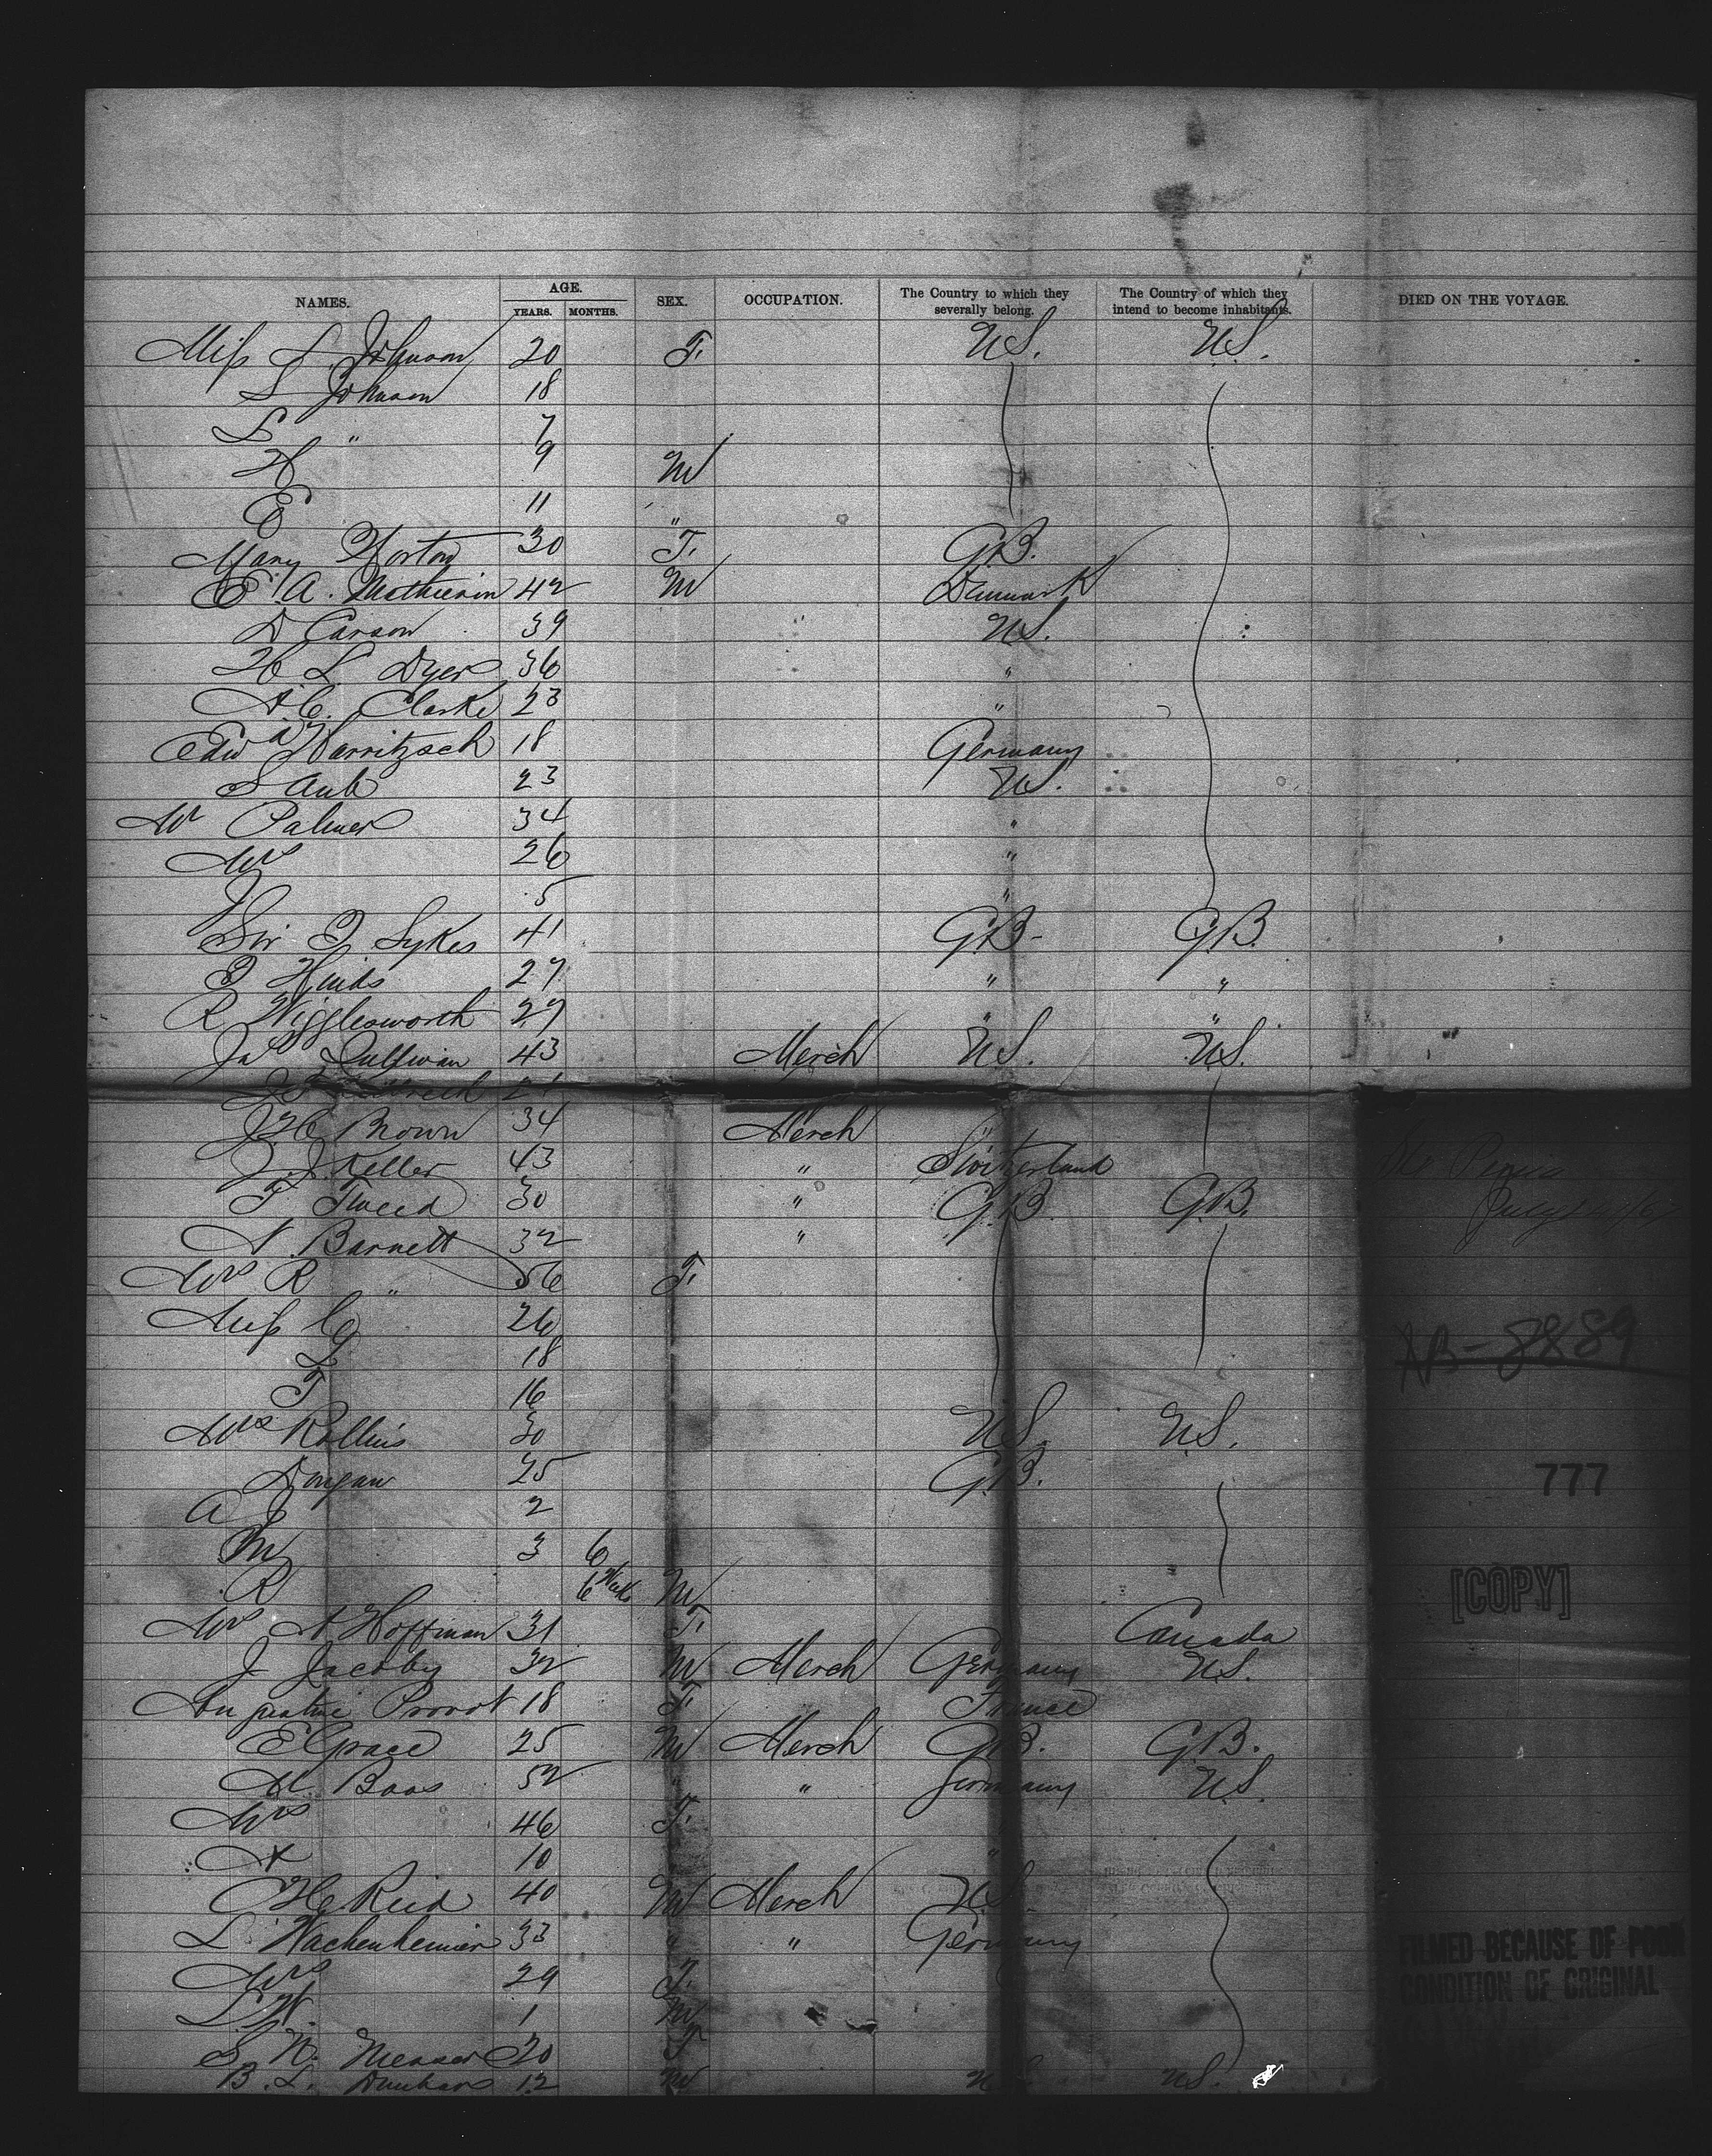 NAMES. AGE. YEARS. MONTHS. SEX. OCCUPATION. The Country to which they severally belong. The Country of which they intend to become inhabitants. DIED ON THE VOYAGE.
Miss L. Johnson 20 F. U.S. U.S.
S Johnson 18
L " 7
H 9 M
E 11 "
Mary Horton 30 F. G.B.
E. A. 42 M Denmark
D Carson 39 U.S.
H L Dyer 36 "
A. C. Clarke 23 "
Edw 18 Germany
S Aub 23 U.S.
Mr Palmer 34 "
Mrs 26 "
J 5 "
Sir T. Sykes 41 G.B. G.B.
T Hinds 27 " "
R Wigglesworth 27 " "
Jas Sullivan 43 Merch U.S. U.S.
J H Brown 34 Merch "
J. J. Keller 43 " Switzerland
F Tweed 30 " G.B. G.B.
A. Barnett 32 "
Mrs R " 56 F.
Miss C 26
L 18
F 16
Mrs Rollins 30 U.S. U.S.
Dongan 25 G.B.
A J 2
M 3 6
R 6 Weeks M
Mrs A Hoffman 31 F. Canada
J Jacoby 32 M Merch Germany U.S.
Augustine Provot 18 F. France
E Grace 25 M Merch G.B. G.B.
M. Baas 52 " " Germany U.S.
Mrs 46 F.
A 10 "
C H Reid 40 M Merch U.S.
L. Wachenheimer 33 " " Germany
Mrs 29 F.
L W. 1 M
S. N. Messer 20 F
B. L. Dunham 12 M U.S. U.S.
July
AB-8889
777
[COPY]
FILMED BECAUSE OF POOR
CONDITION OF ORIGINAL